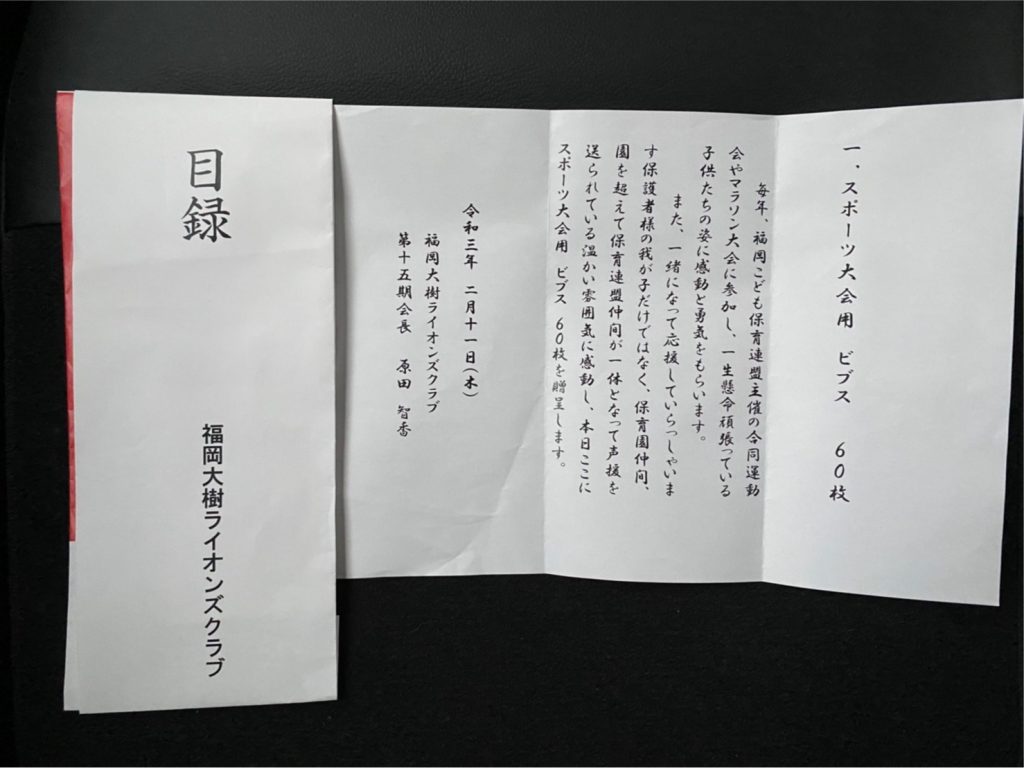 一、スポーツ大会用 ビブス 60枚
毎年、福岡こども保育連盟主催の合同運動
会やマラソン大会に参加し、一生懸命頑張っている
子供たちの姿に感動と勇気をもらいます。
また、一緒になって応援していらっしゃいま
す保護者様の我が子だけではなく、保育園仲間、
園を超えて保育連盟仲間が一体となって声援を
送られている温かい雰囲気に感動し、本日ここに
スポーツ大会用 ビブス 60枚を贈呈します。
令和三年 二月十一日(木)
福岡大樹ライオンズクラブ
第十五期会長 原田 智香
目録
福岡大樹ライオンズクラブ